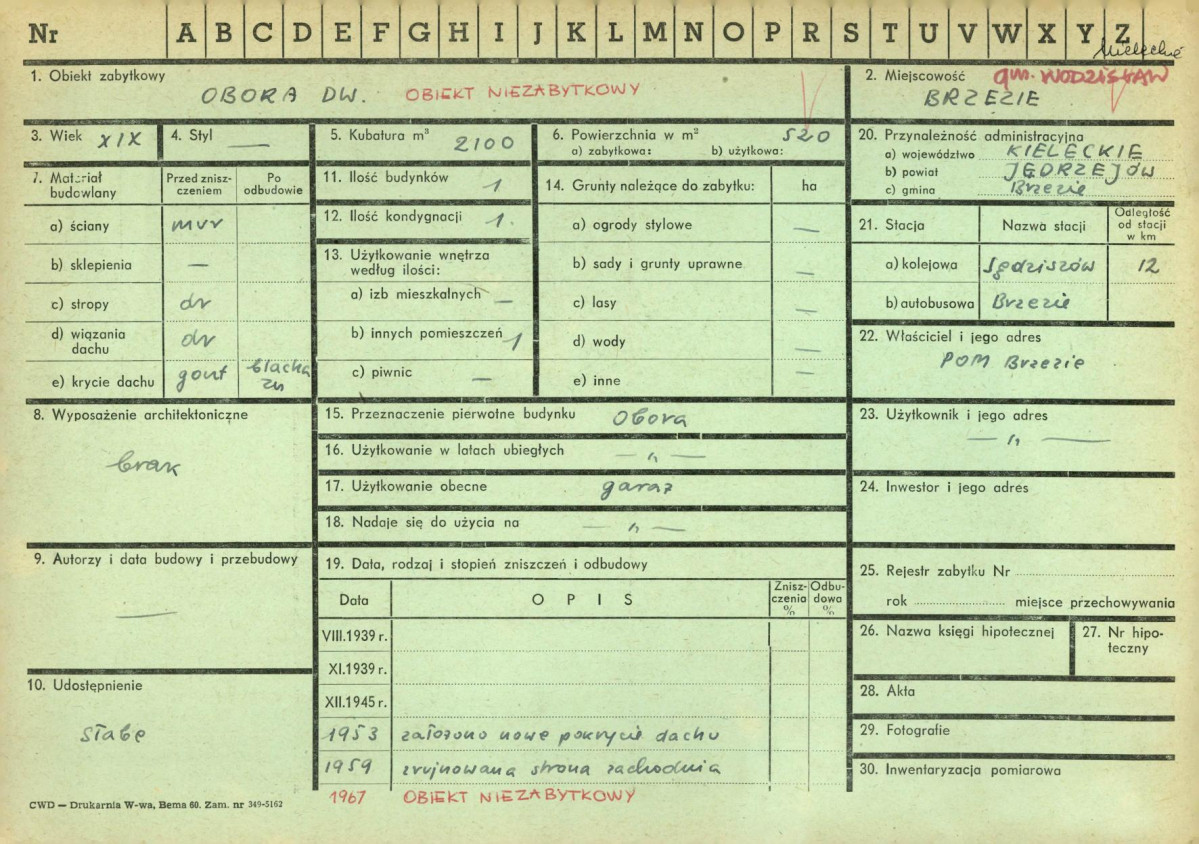 Nr A B C D E F G H I J K L M N O P R S T U V W X Y Z
1. Obiekt zabytkowy
OBORA DW. OBIEKT NIEZABYTKOWY
2. Miejscowość gm. WODZISŁAW
BRZEZIE
3. Wiek XIX
4. Styl —
5. Kubatura m³ 2100
6. Powierzchnia w m² 520
a) zabytkowa: b) użytkowa:
7. Materiał budowlany
Przed zniszczeniem
Po odbudowie
a) ściany mur
b) sklepienia —
c) stropy dr
d) wiązania dachu dr
e) krycie dachu gont blacha zn
8. Wyposażenie architektoniczne
brak
9. Autorzy i data budowy i przebudowy
—
10. Udostępnienie
słabe
11. Ilość budynków 1
12. Ilość kondygnacji 1.
13. Użytkowanie wnętrza
według ilości:
a) izb mieszkalnych —
b) innych pomieszczeń 1
c) piwnic —
14. Grunty należące do zabytku: ha
a) ogrody stylowe —
b) sady i grunty uprawne —
c) lasy —
d) wody —
e) inne —
15. Przeznaczenie pierwotne budynku Obora
16. Użytkowanie w latach ubiegłych — „ —
17. Użytkowanie obecne garaż
18. Nadaje się do użycia na — „ —
19. Data, rodzaj i stopień zniszczeń i odbudowy
Data OPIS Zniszczenia % Odbudowa %
VIII.1939 r.
XI.1939 r.
XII.1945 r.
1953 założono nowe pokrycie dachu
1959 zrujnowana strona zachodnia
1967 OBIEKT NIEZABYTKOWY
20. Przynależność administracyjna
a) województwo KIELECKIE
b) powiat JĘDRZEJÓW
c) gmina Brzezie
21. Stacja Nazwa stacji Odległość od stacji w km
a) kolejowa Sędziszów 12
b) autobusowa Brzezie
22. Właściciel i jego adres
POM Brzezie
23. Użytkownik i jego adres
— „ —
24. Inwestor i jego adres
25. Rejestr zabytku Nr
rok miejsce przechowywania
26. Nazwa księgi hipotecznej
27. Nr hipoteczny
28. Akta
29. Fotografie
30. Inwentaryzacja pomiarowa
CWD — Drukarnia W-wa, Bema 60. Zam. nr 349-5162